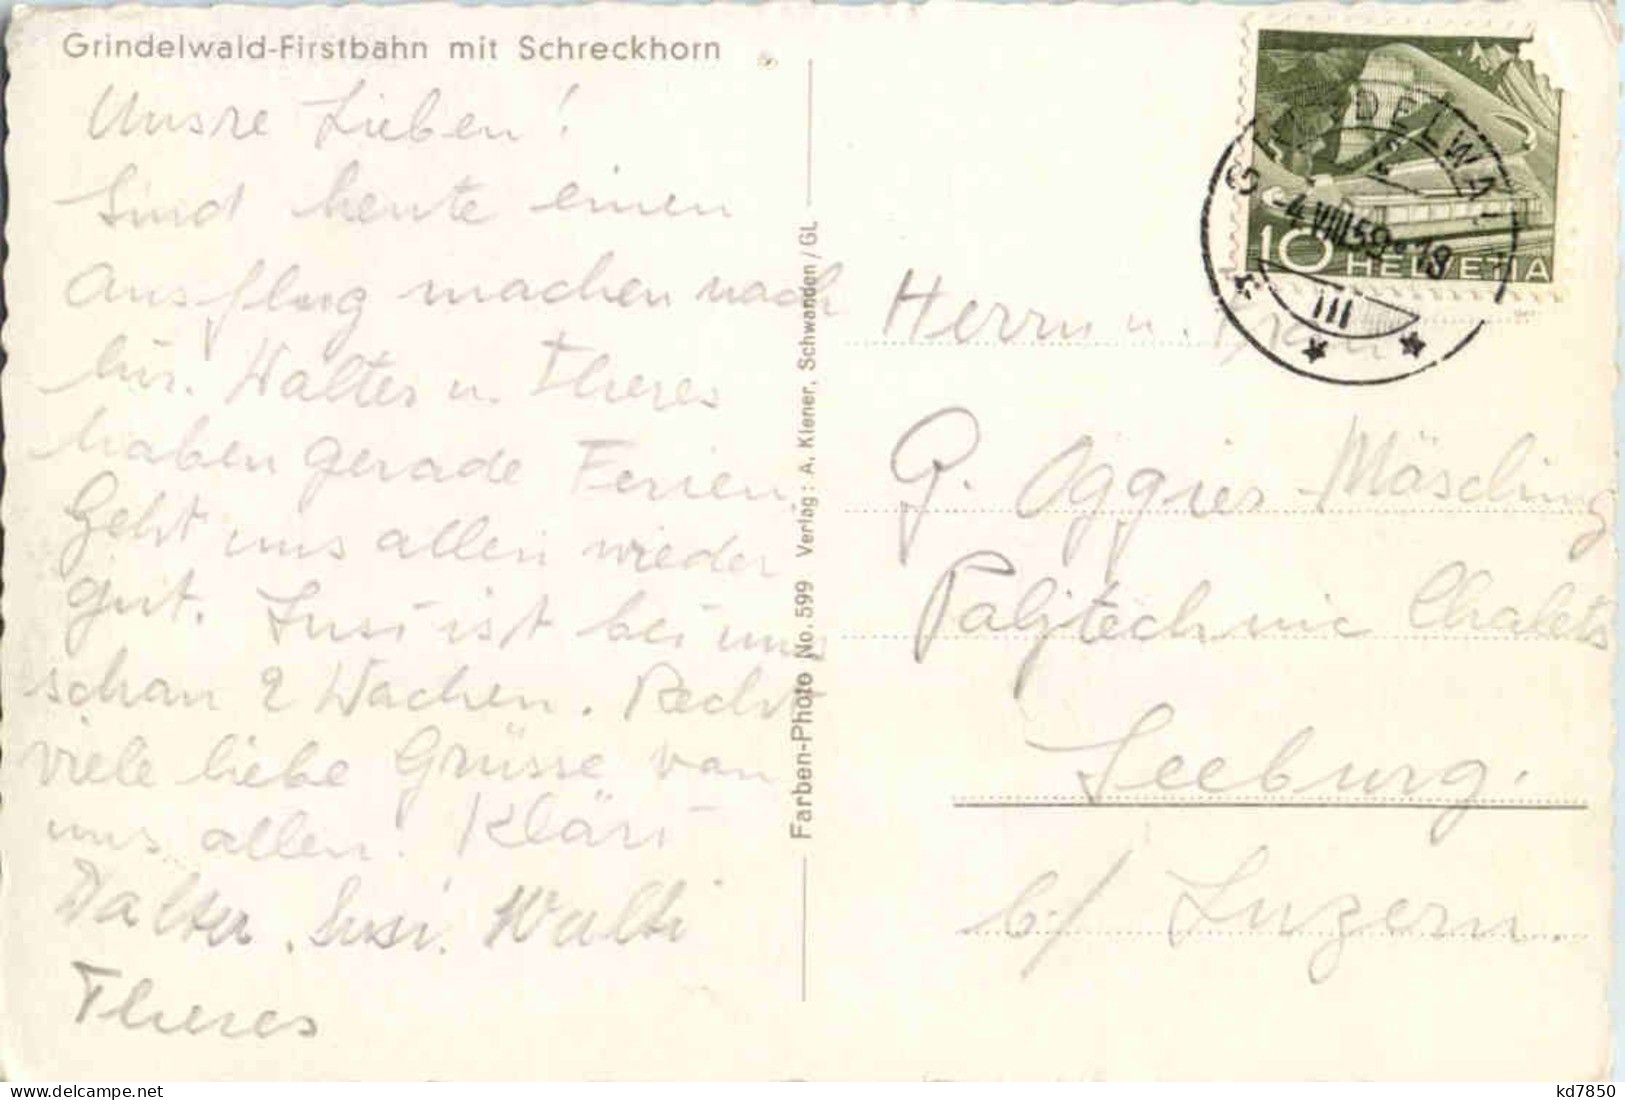 Grindelwald-Firstbahn mit Schreckhorn
Unsre Lieben!
Sind heute einen
Ausflug machen nach
hier. Walter u. Theres
haben gerade Ferien
Geht uns allen wieder
gut. Susi ist bei uns
schon 2 Wochen. Recht
viele liebe Grüsse von
uns allen! Kläri
Walter. Susi. Walti
Theres
Farben-Photo No. 599 Verlag: A. Kiener, Schwanden/GL
10 HELVETIA
-4.VIII.59-18
III
Herrn u. Frau
G. Oggier-Mäsching
Polytechnic Chalets
Seeburg.
b/ Luzern.
kd7850